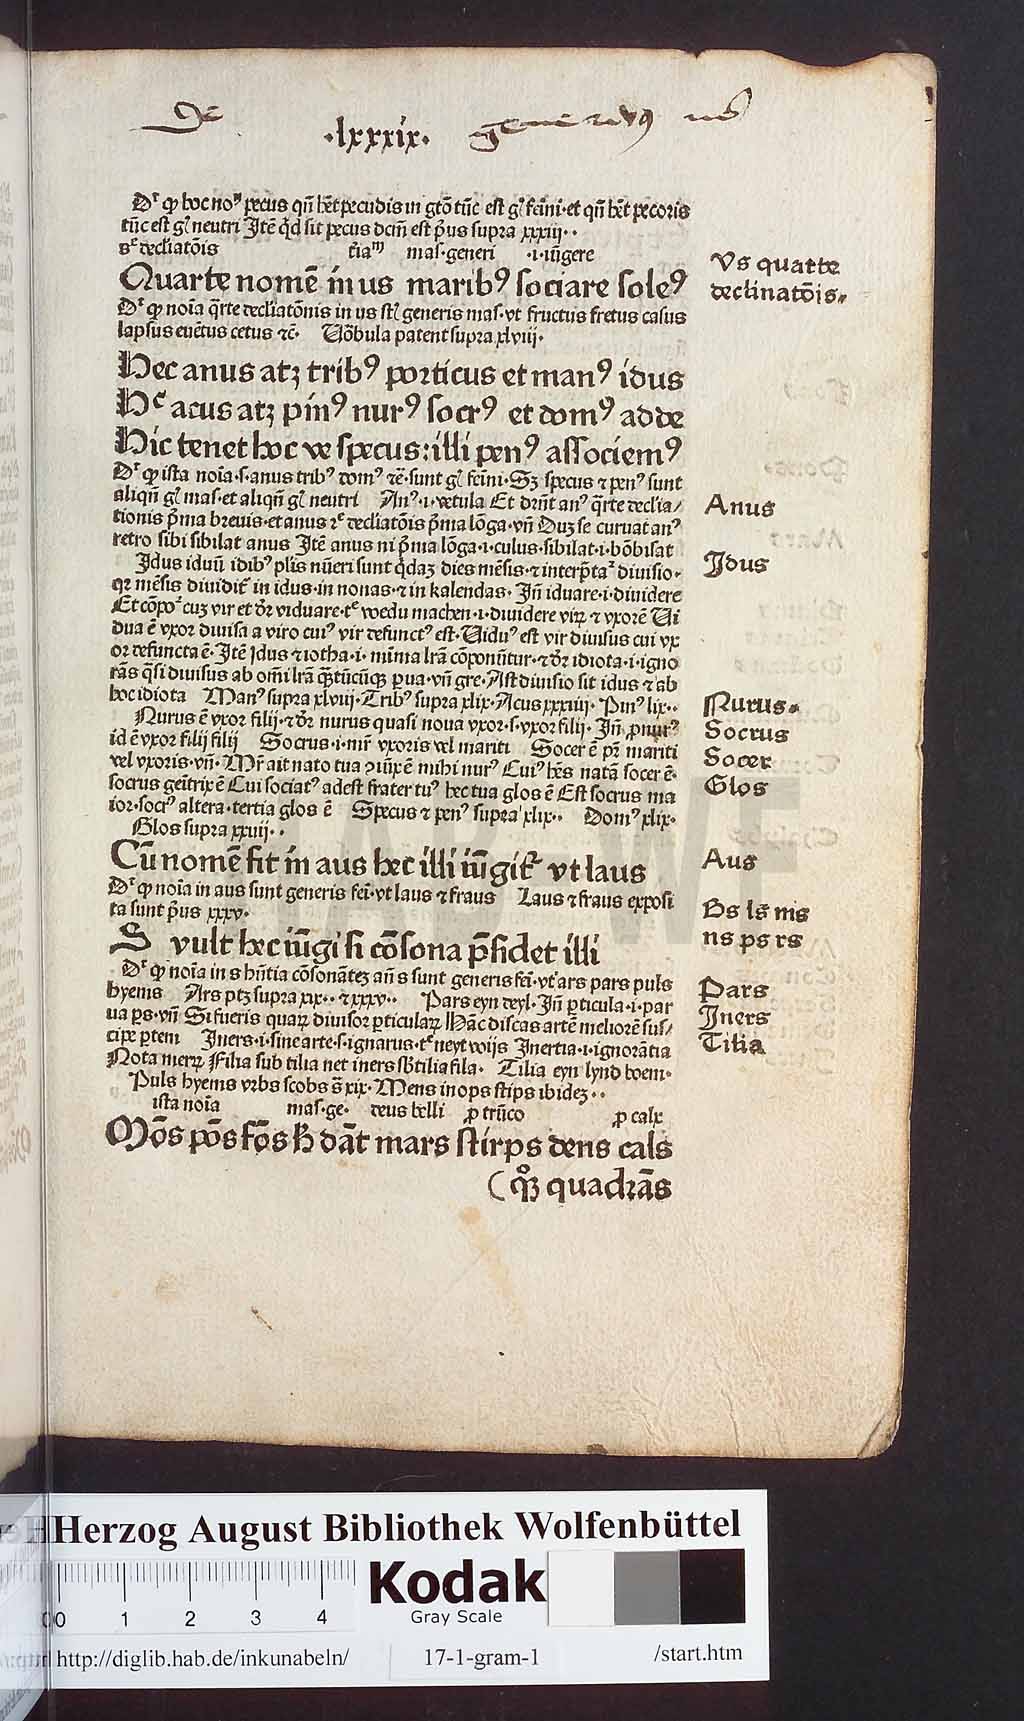 De
·lxxxix· generibus
Dr ꝙ hoc noᵐ pecus qn̄ hēt pecudis in gtō tūc est gl' femi·et qn̄ hēt pecoris
tūc est gl' neutri Itē qd sit pecus dcm̄ est p̄us supra xxxiii··
se decliatōis mas·generi ·i·iūgere
Quarte nomē in us maribꝰ sociare soleꝰ
Dr ꝙ noīa q̄rte decliatōnis in us sūt gl' generis mas·vt fructus fretus casus
lapsus euētus cetus ⁊c̄· Uōbula patent supra xlviii·
Vs quarte
declinatōis
Hec anus atꝫ tribꝰ porticus et manꝰ idus
Hec acus atꝫ pinꝰ nurꝰ socrꝰ et domꝰ adde
Hic tenet hoc ve specus:illi penꝰ associemꝰ
Dr ꝙ ista noīa·s·anus tribꝰ domꝰ ⁊c̄·sunt gl' femi·Sꝫ specus ⁊ penꝰ sunt
aliqn̄ gl' mas·et aliqn̄ gl' neutri Anꝰ·i·vetula Et drn̄t anꝰ q̄rte declia/
tionis p̄ma breuis·et anus decliatōis p̄ma lōga·vn̄ Duꝫ se curuat anꝰ
retro sibi sibilat anus Itē anus ni p̄ma lōga·i·culus·sibilat·i·bōbisat
Anus
Idus iduū idibꝰ plis nūeri sunt q̄daꝫ dies mēsis·⁊ interp̄taᵗ diuisio·
qꝛ mēsis diuidiᵗ in idus·in nonas·⁊ in kalendas· Jn̄ iduare·i·diuidere
Et cōpoᵗ cuꝫ vir et dr̄ viduare·te wedu machen·i·diuidere virꝝ ⁊ vxorē Ui
dua ē vxor diuisa a viro cuiꝰ vir defunctꝰ est·Uiduꝰ est vir diuisus cui vx
or defuncta ē·Itē Idus ⁊ iotha·i·minima lrā cōponūtur·⁊ dr̄ idiota·i·igno
rās q̄si diuisus ab om̄i lrā q̄tūcūqꝫ parua·vn̄ gre·Ast diuisio sit idus ⁊ ab
hoc idiota Manꝰ supra xlviii·Tribꝰ supra xlix·Acus xxxiiii· Pinꝰ lix··
Idus
Nurus ē vxor filij·⁊ dr̄ nurus quasi noua vxor·s·vxor filij· Jn̄ pronurꝰ
id ē vxor filij filij Socrus·i·mr̄ vxoris vel mariti Socer ē pr̄ mariti
vel vxoris·vn̄·Mr̄ ait nato tua ꝯiūx ē mihi nurꝰ Cuiꝰ hēs natā socer ē·
socrus geītrix ē Cui sociatꝰ adest frater tuꝰ hec tua glos ē Est socrus ma
ior·socrꝰ altera·tertia glos ē Specus ⁊ penꝰ supra xlix·· Domꝰ xlix·
Glos supra xxvii··
Nurus
Socrus
Socer
Glos
Cū nomē fit in aus hec illi iūgit̄ vt laus
Dr ꝙ noīa in aus sunt generis fei·vt laus ⁊ fraus Laus ⁊ fraus exposi
ta sunt p̄us xxxv·
Aus
S vult hec iūgi si cōsona p̄sidet illi
Dr ꝙ noīa in s hn̄tia cōsonāteꝫ an̄ s sunt generis fei·vt ars pars puls
hyems Ars ptꝫ supra xix·· ⁊ xxxv·· Pars eyn deyl·Jn̄ ꝑticula·i·par
ua ꝑs·vn̄ Si fueris quaꝝ diuisor ꝑticulaꝝ Hāc discas artē meliorē sus/
cipe ꝑtem Iners·i·sine arte·s·ignarus·te neyt wijs Inertia·i·ignorātia
Nota merꝝ Filia sub tilia net iners sbtilia fila· Tilia eyn lynd boem·
Puls hyems vrbs scobs xix·Mens inops stips ibideꝫ··
Bs ls ms
ns ps rs
Pars
Iners
Tilia
ista noīa mas·ge· deus belli ꝓ trūco ꝓ calx
Mōs pōs fōs dāt mars stirps dens cals
(quadrās
HAB-WF
Herzog August Bibliothek Wolfenbüttel
0 1 2 3 4
Kodak
Gray Scale
http://diglib.hab.de/inkunabeln/ 17-1-gram-1 /start.htm